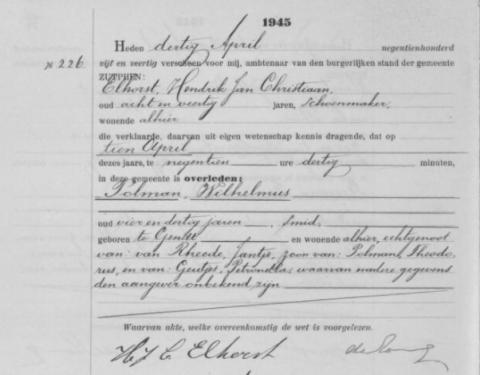 1945
Heden dertig April negentienhonderd
№ 226. vijf en veertig verscheen voor mij, ambtenaar van den burgerlijken stand der gemeente
ZUTPHEN:
Elhorst, Hendrik Jan Christiaan,
oud acht en veertig jaren, schoenmaker,
wonende alhier
die verklaarde, daarvan uit eigen wetenschap kennis dragende, dat op
tien April
dezes jaars, te negentien ure dertig minuten,
in deze gemeente is overleden:
Polman, Wilhelmus
oud vier en dertig jaren, smid,
geboren te en wonende alhier, echtgenoot
van: van Rheede, Jantje, zoon van: Polman, Theodo-
rus, en van: Geutjes, Petronella, waarvan nadere gegevens
den aangever onbekend zijn
Waarvan akte, welke overeenkomstig de wet is voorgelezen.
H J C Elhorst